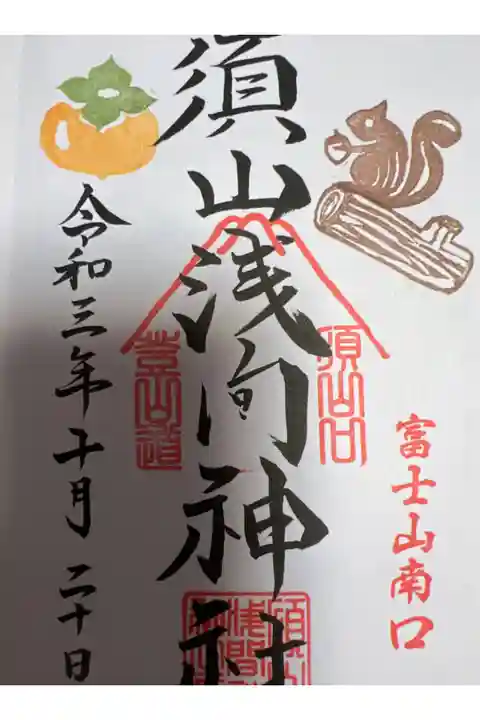 富士山南口
須山口
須山浅间神社
登山道
令和三年十月二十日